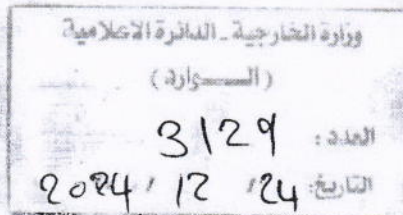 وزارة الخارجية - الدائرة الاعلامية
( الـــوارد )
العدد : 3129
التاريخ: 24 / 12 / 2024